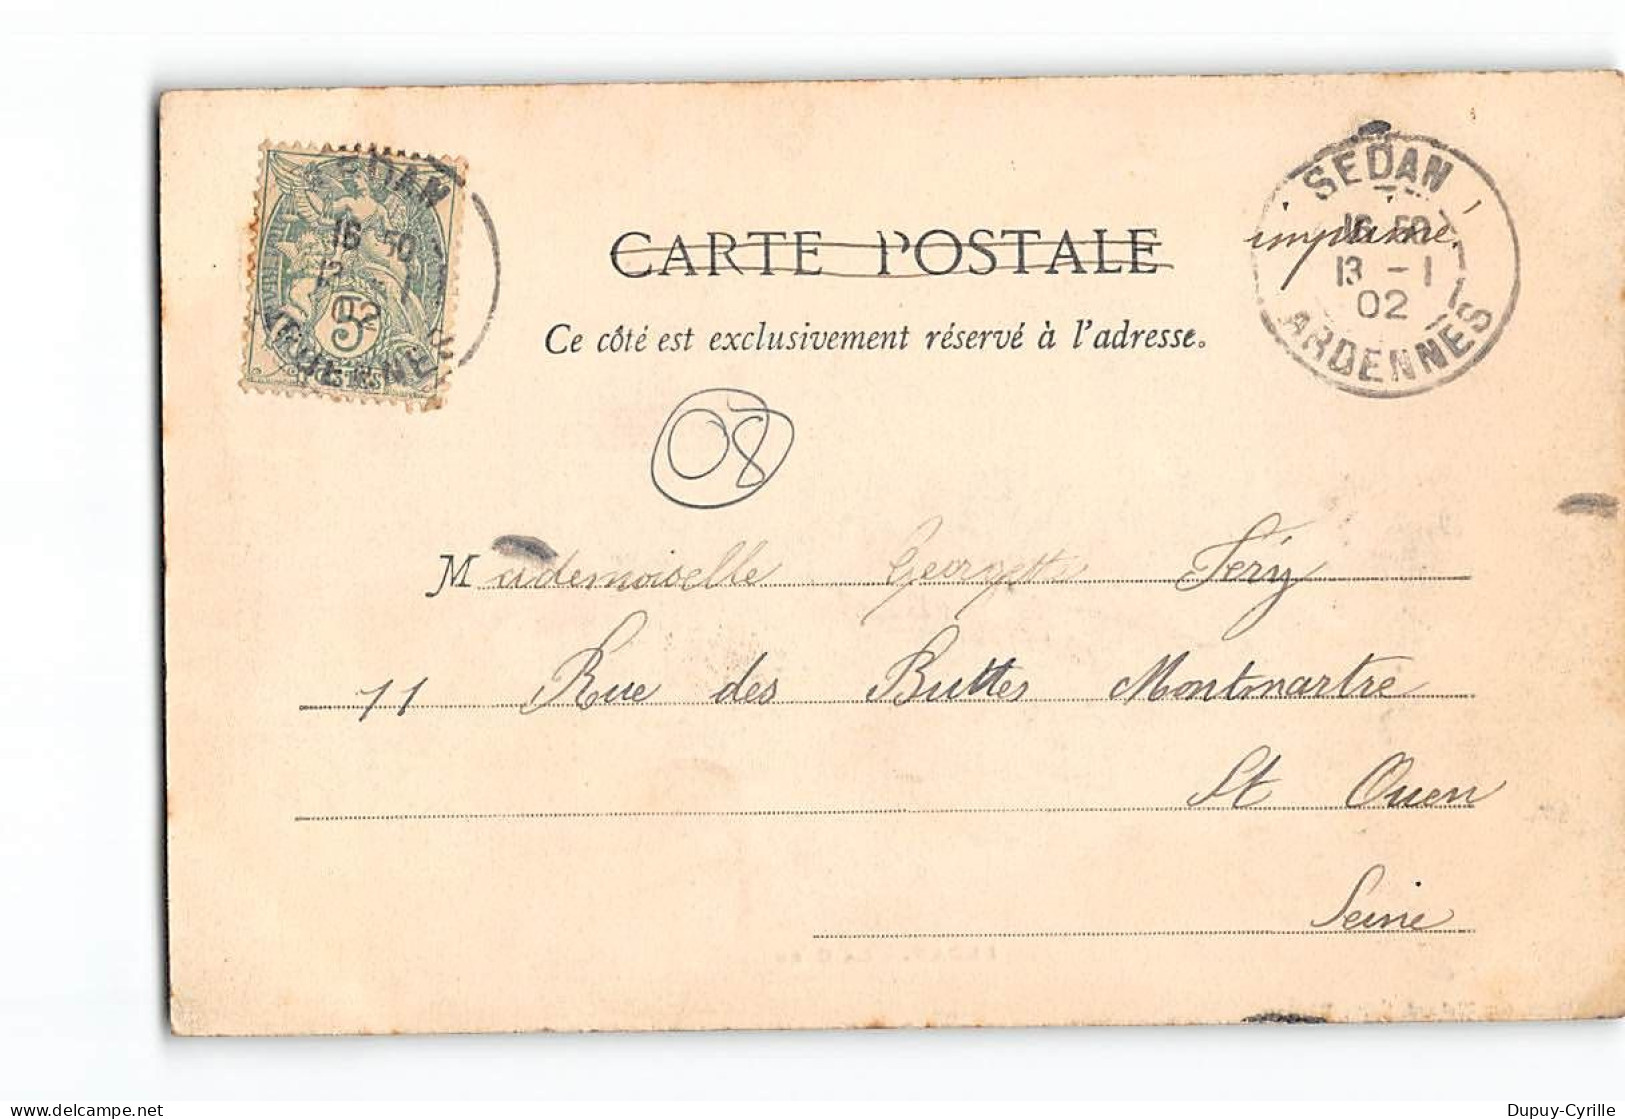 SEDAN
16 50
13
02
5
POSTES
SEDAN
16 50
13 - 1
02
ARDENNES
imprimé.
CARTE POSTALE
Ce côté est exclusivement réservé à l'adresse.
08
Mademoiselle Georgette Féry
11 Rue des Buttes Montmartre
St Ouen
Seine
Dupuy-Cyrille